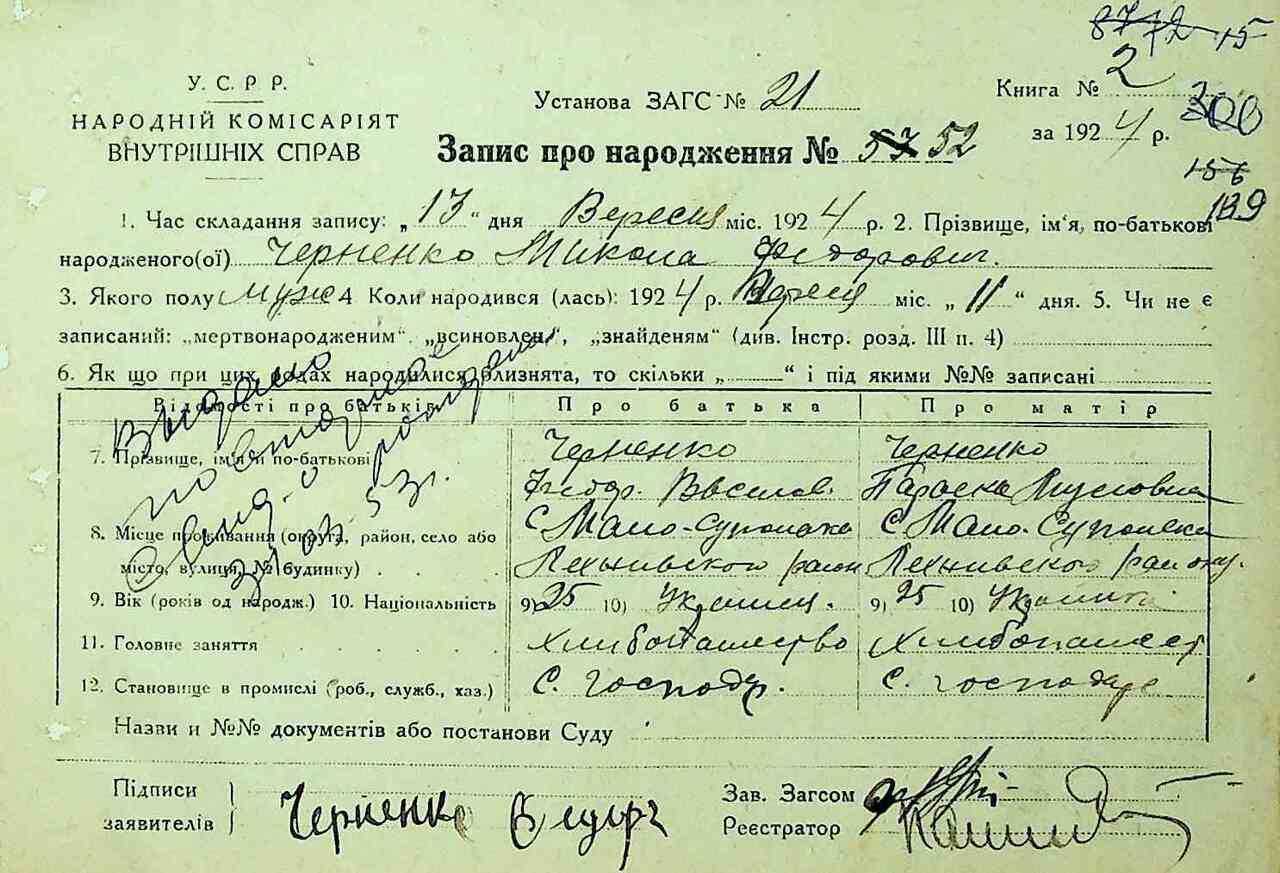 8772 15
У. С. Р Р.
НАРОДНІЙ КОМІСАРІЯТ
ВНУТРІШНІХ СПРАВ
Установа ЗАГС № 21
Книга № 2
за 1924 р.
300
Запис про народження № 57 52
156
189
1. Час складання запису: „13“ дня Вересня міс. 1924 р. 2. Прізвище, ім‘я, по-батькові
народженого(ої) Черненко Микола Федорович.
3. Якого полу муж 4 Коли народився (лась): 1924 р. Вересня міс. „11“ дня. 5. Чи не є
записаний: „мертвонародженим“. „всиновлен.“, „знайденям“ (див. Інстр. розд. III п. 4)
6. Як що при цих родах народилися близнята, то скільки „ “ і під якими №№ записані
Відомості про батьків Про батька Про матір
7. Прізвище, ім‘я й по-батькові Черненко Черненко
Федор. Васелов. Параска
8. Місце проживання (округа, район, село або С Мало-Супоевка С Мало-Супоевка
місто, вулиця, № будинку) району.
9. Вік (років од народж.) 10. Національність 9) 25 10) Украинец. 9) 25 10) Украинка
11. Головне заняття Хлибопашество Хлибопашест
12. Становище в промислі (роб., служб., хаз.) С. господар. С. господаре
Выдано
повторное
свид. о
53г.
Назви и №№ документів або постанови Суду
Підписи
заявителів Черненко Федорь
Зав. Загсом
Реєстратор